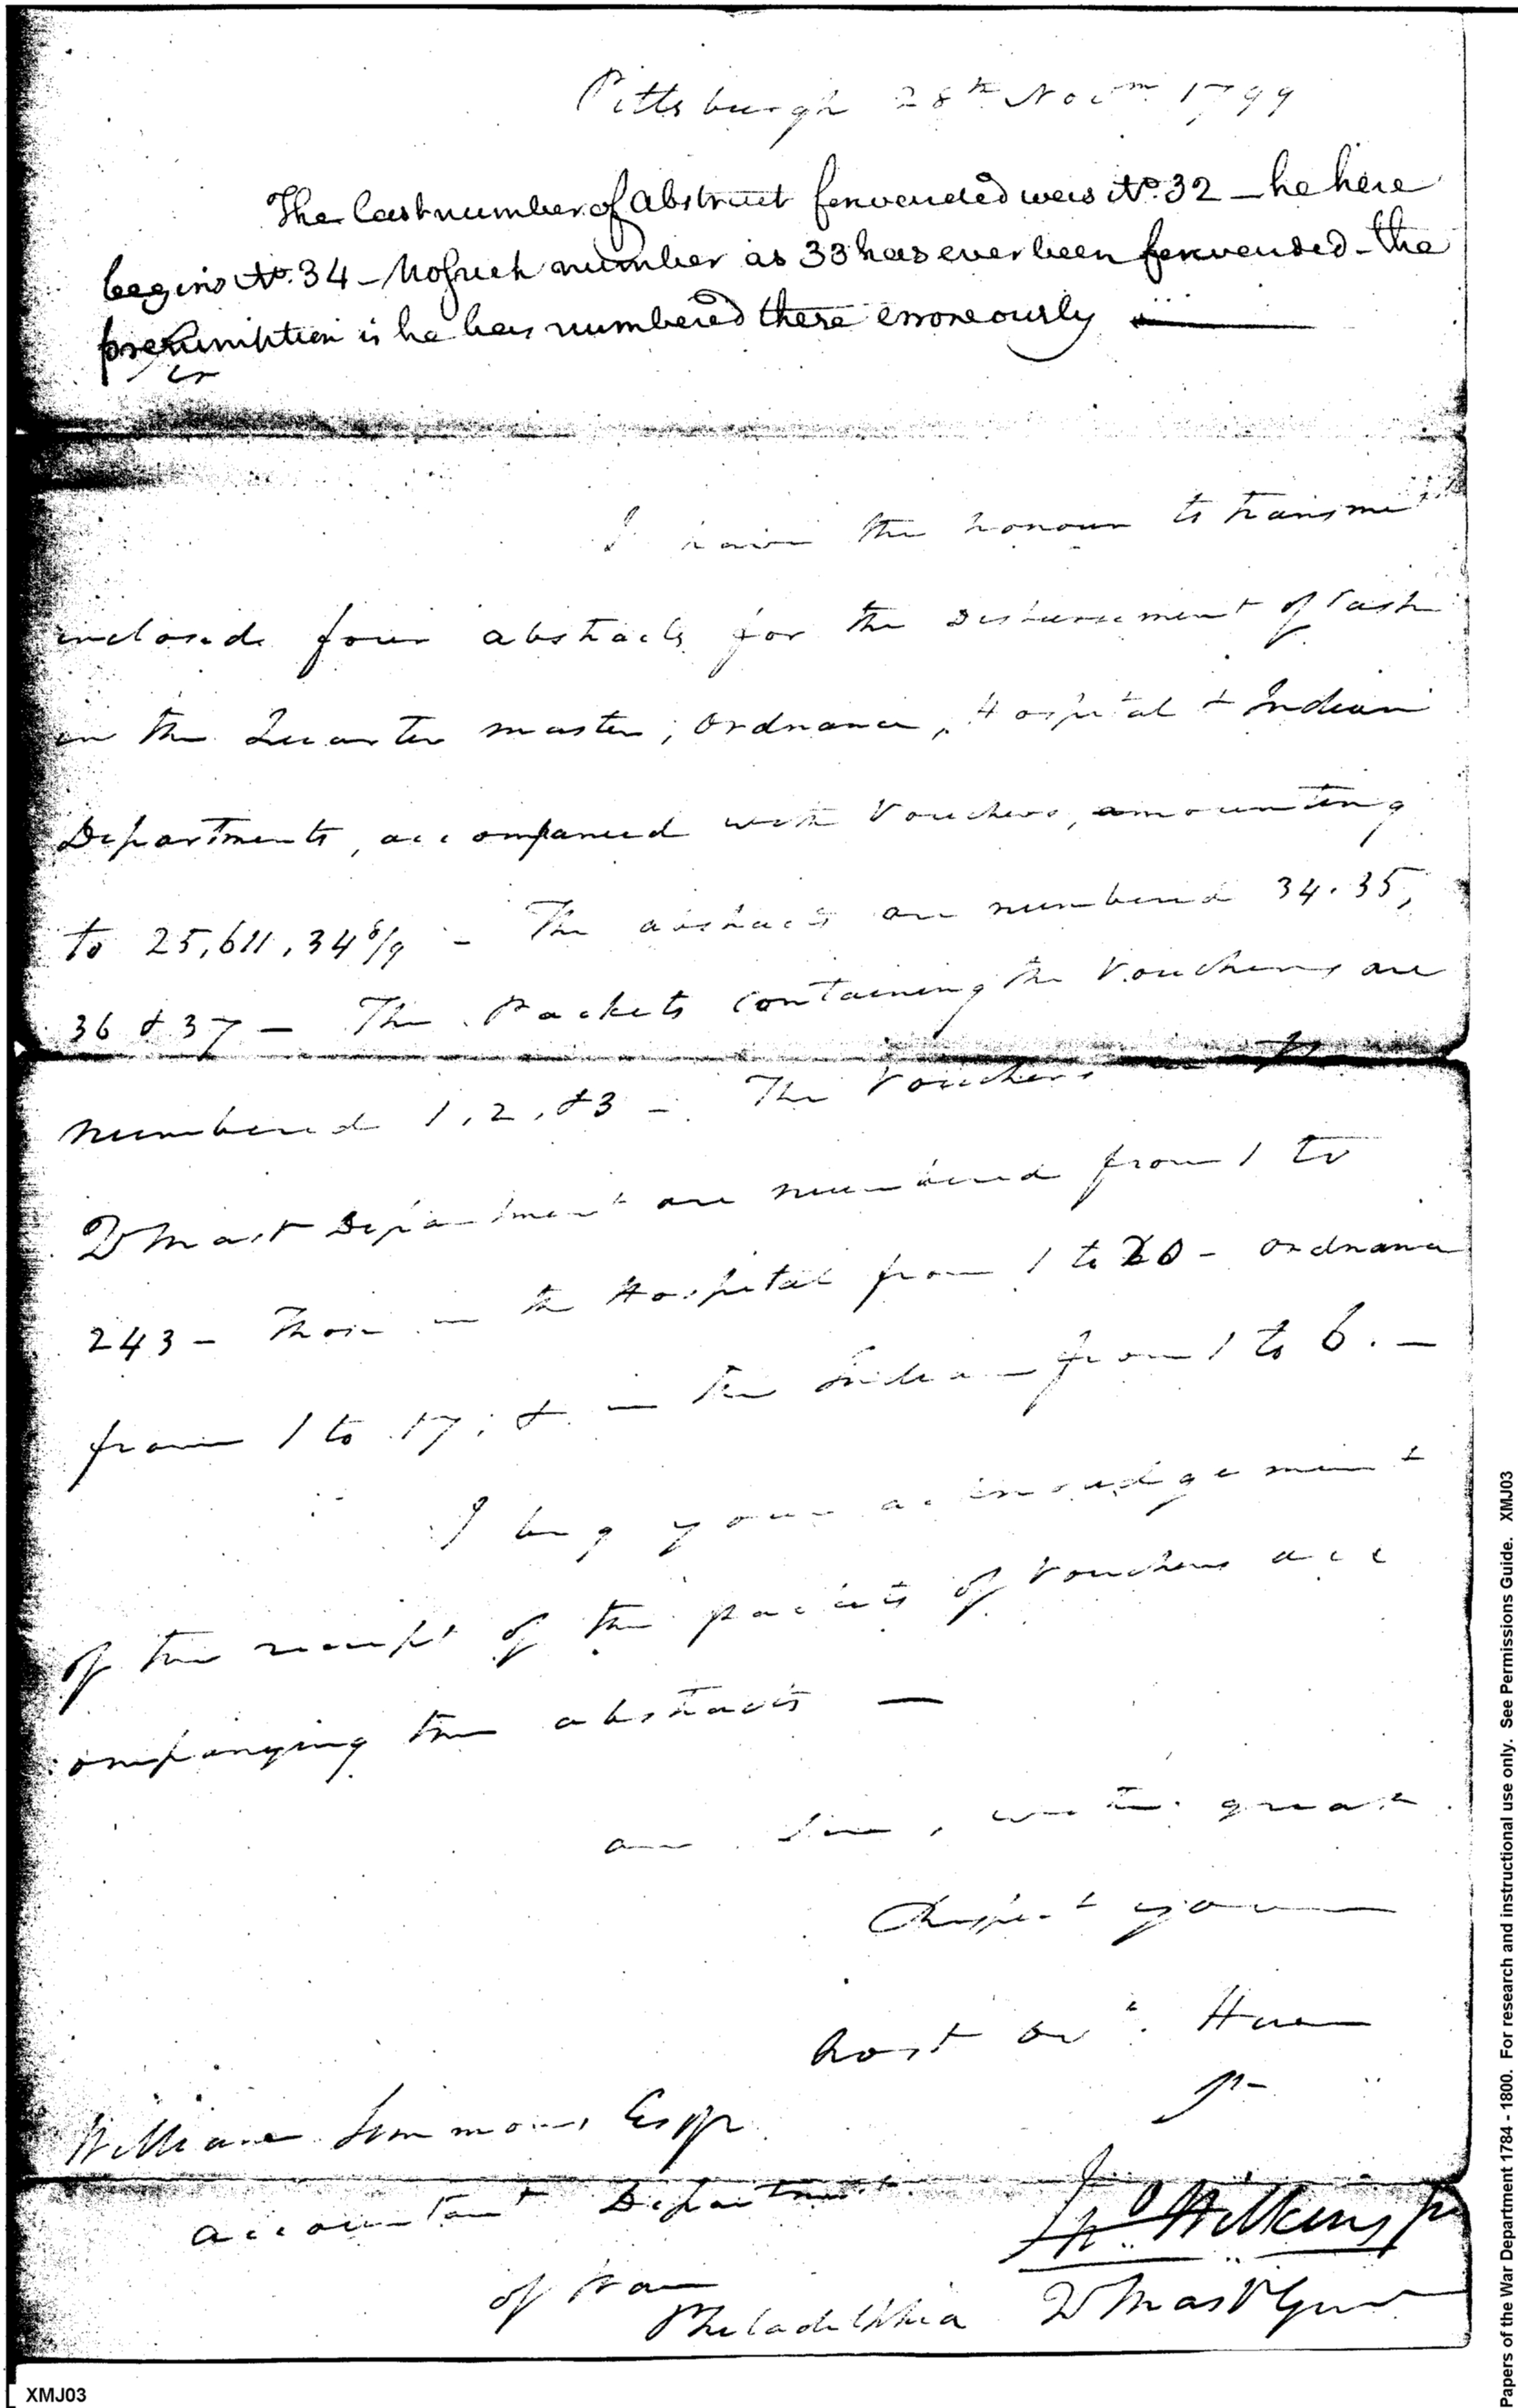 Pittsburgh 28th Novm 1799
The last number of abstract forwarded was No. 32 – he here
begins No. 34 – No such number as 33 has ever been forwarded – the
presumption is he has numbered these erroneously
I have the honour to transmit
inclosed four abstracts for the disbursement of Cash
in the Quarter master, Ordnance, Hospital & Indian
Departments, accompanied with Vouchers, amounting
to 25,611,34 6/9 – The abstracts are numbered 34. 35,
36 & 37 – The Packets containing the Vouchers are
numbered 1, 2, & 3 – The Vouchers in the
QMast Department are numbered from 1 to
243 – Those in the Hospital from 1 to 20 – Ordnance
from 1 to 17; & in the Indian from 1 to 6. –
I beg your acknowledgement
of the receipt of the packets of Vouchers acc
ompanying the abstracts —
am Sir, with great
Respect your
most ob. Hum
Sr
William Simmons Esqr
Accountant Department
of War
Philadelphia
Jno Wilkins Jr
QMast Genl
XMJ03
Papers of the War Department 1784 - 1800. For research and instructional use only. See Permissions Guide. XMJ03